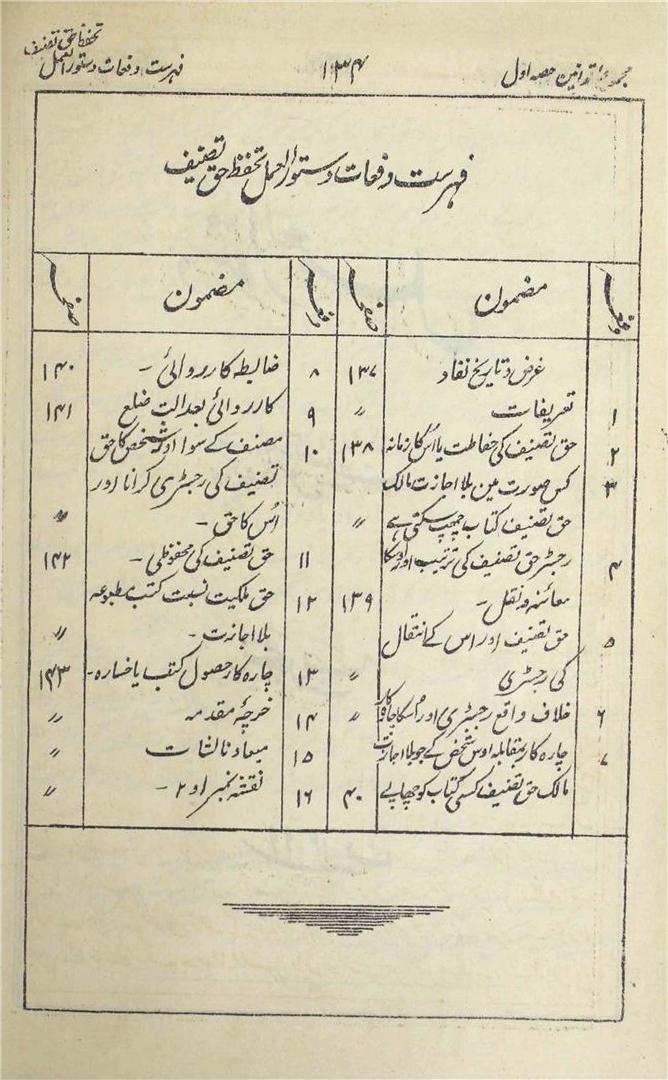 مجموعہ قوانین حصہ اول
۱۳۴
تحفظ حق تصنیف
فہرست دفعات دستورالعمل
فہرست دفعات دستورالعمل تحفظ حق تصنیف
دفعہ مضمون صفحہ
غرض و تاریخ نفاد ۱۳۷
۱ تعریفات 〃
۲ حق تصنیف کی حفاظت یا اُس کا زمانہ ۱۳۸
۳ کس صورت مین بلا اجازت مالک
حق تصنیف کتاب چھپ سکتی ہے 〃
۴ رجسٹر حق تصنیف کی ترتیب اور اوسکا
معائنہ و نقل - ۱۳۹
۵ حق تصنیف اور اس کے انتقال
کی رجسٹری 〃
۶ خلاف واقع رجسٹری اور اُسکا چارہ کار 〃
۷ چارہ کار بمقابلہ اوس شخص کے جو بلا اجازت
مالک حق تصنیف کسی کتاب کو چھاپے ۴۰
دفعہ مضمون صفحہ
۸ ضابطہ کارروائی - ۱۴۰
۹ کارروائی بعدالت ضلع ۱۴۱
۱۰ مصنف کے سوا اور شخص کا حق
تصنیف کی رجسٹری کرانا اور
اُس کا حق - 〃
۱۱ حق تصنیف کی محفوظی - ۱۴۲
۱۲ حق ملکیت نسبت کتب مطبوعہ
بلا اجازت - 〃
۱۳ چارہ کار حصول کتب یا خسارہ - ۱۴۳
۱۴ خرچۂ مقدمہ 〃
۱۵ میعاد نالشات 〃
۱۶ نقشہ نمبر ا و ۲ - 〃